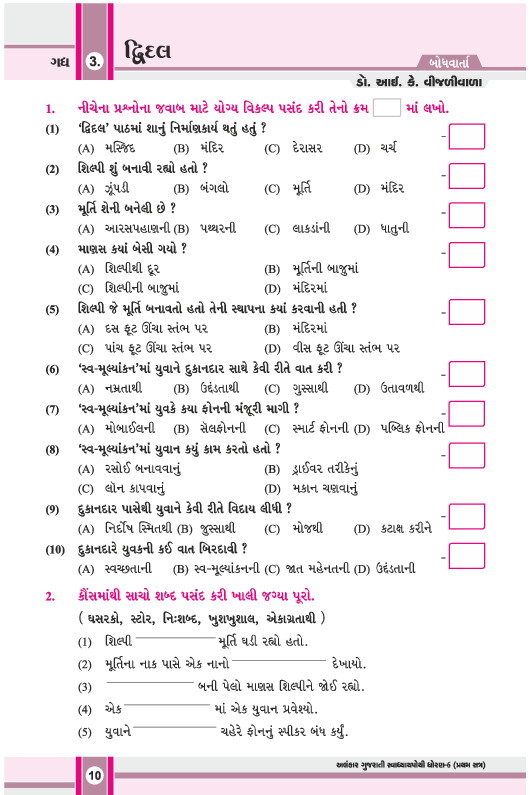 ગદ્ય
3.
દ્વિદલ
બોધવાર્તા
ડૉ. આઈ. કે. વીજળીવાળા
1. નીચેના પ્રશ્નોના જવાબ માટે યોગ્ય વિકલ્પ પસંદ કરી તેનો ક્રમ માં લખો.
(1) ‘દ્વિદલ’ પાઠમાં શાનું નિર્માણકાર્ય થતું હતું ?
(A) મસ્જિદ (B) મંદિર (C) દેરાસર (D) ચર્ચ
(2) શિલ્પી શું બનાવી રહ્યો હતો ?
(A) ઝૂંપડી (B) બંગલો (C) મૂર્તિ (D) મંદિર
(3) મૂર્તિ શેની બનેલી છે ?
(A) આરસપહાણની (B) પથ્થરની (C) લાકડાંની (D) ધાતુની
(4) માણસ કયાં બેસી ગયો ?
(A) શિલ્પીથી દૂર (B) મૂર્તિની બાજુમાં
(C) શિલ્પીની બાજુમાં (D) મંદિરમાં
(5) શિલ્પી જે મૂર્તિ બનાવતો હતો તેની સ્થાપના કયાં કરવાની હતી ?
(A) દસ ફૂટ ઊંચા સ્તંભ પર (B) મંદિરમાં
(C) પાંચ ફૂટ ઊંચા સ્તંભ પર (D) વીસ ફૂટ ઊંચા સ્તંભ પર
(6) ‘સ્વ-મૂલ્યાંકન’માં યુવાને દુકાનદાર સાથે કેવી રીતે વાત કરી ?
(A) નમ્રતાથી (B) ઉદ્દંડતાથી (C) ગુસ્સાથી (D) ઉતાવળથી
(7) ‘સ્વ-મૂલ્યાંકન’માં યુવકે કયા ફોનની મંજૂરી માગી ?
(A) મોબાઈલની (B) સૅલફોનની (C) સ્માર્ટ ફોનની (D) પબ્લિક ફોનની
(8) ‘સ્વ-મૂલ્યાંકન’માં યુવાન કયું કામ કરતો હતો ?
(A) રસોઈ બનાવવાનું (B) ડ્રાઈવર તરીકેનું
(C) લૉન કાપવાનું (D) મકાન ચણવાનું
(9) દુકાનદાર પાસેથી યુવાને કેવી રીતે વિદાય લીધી ?
(A) નિર્દોષ સ્મિતથી (B) જુસ્સાથી (C) મોજથી (D) કટાક્ષ કરીને
(10) દુકાનદારે યુવકની કઈ વાત બિરદાવી ?
(A) સ્વચ્છતાની (B) સ્વ-મૂલ્યાંકનની (C) જાત મહેનતની (D) ઉદ્દંડતાની
2. કૌંસમાંથી સાચો શબ્દ પસંદ કરી ખાલી જગ્યા પૂરો.
( ઘસરકો, સ્ટોર, નિઃશબ્દ, ખુશખુશાલ, એકાગ્રતાથી )
(1) શિલ્પી ____________ મૂર્તિ ઘડી રહ્યો હતો.
(2) મૂર્તિના નાક પાસે એક નાનો ____________ દેખાયો.
(3) ____________ બની પેલો માણસ શિલ્પીને જોઈ રહ્યો.
(4) એક ____________ માં એક યુવાન પ્રવેશ્યો.
(5) યુવાને ____________ ચહેરે ફોનનું સ્પીકર બંધ કર્યું.
10
અલંકાર ગુજરાતી સ્વાધ્યાયપોથી ધોરણ-6 (પ્રથમ સત્ર)